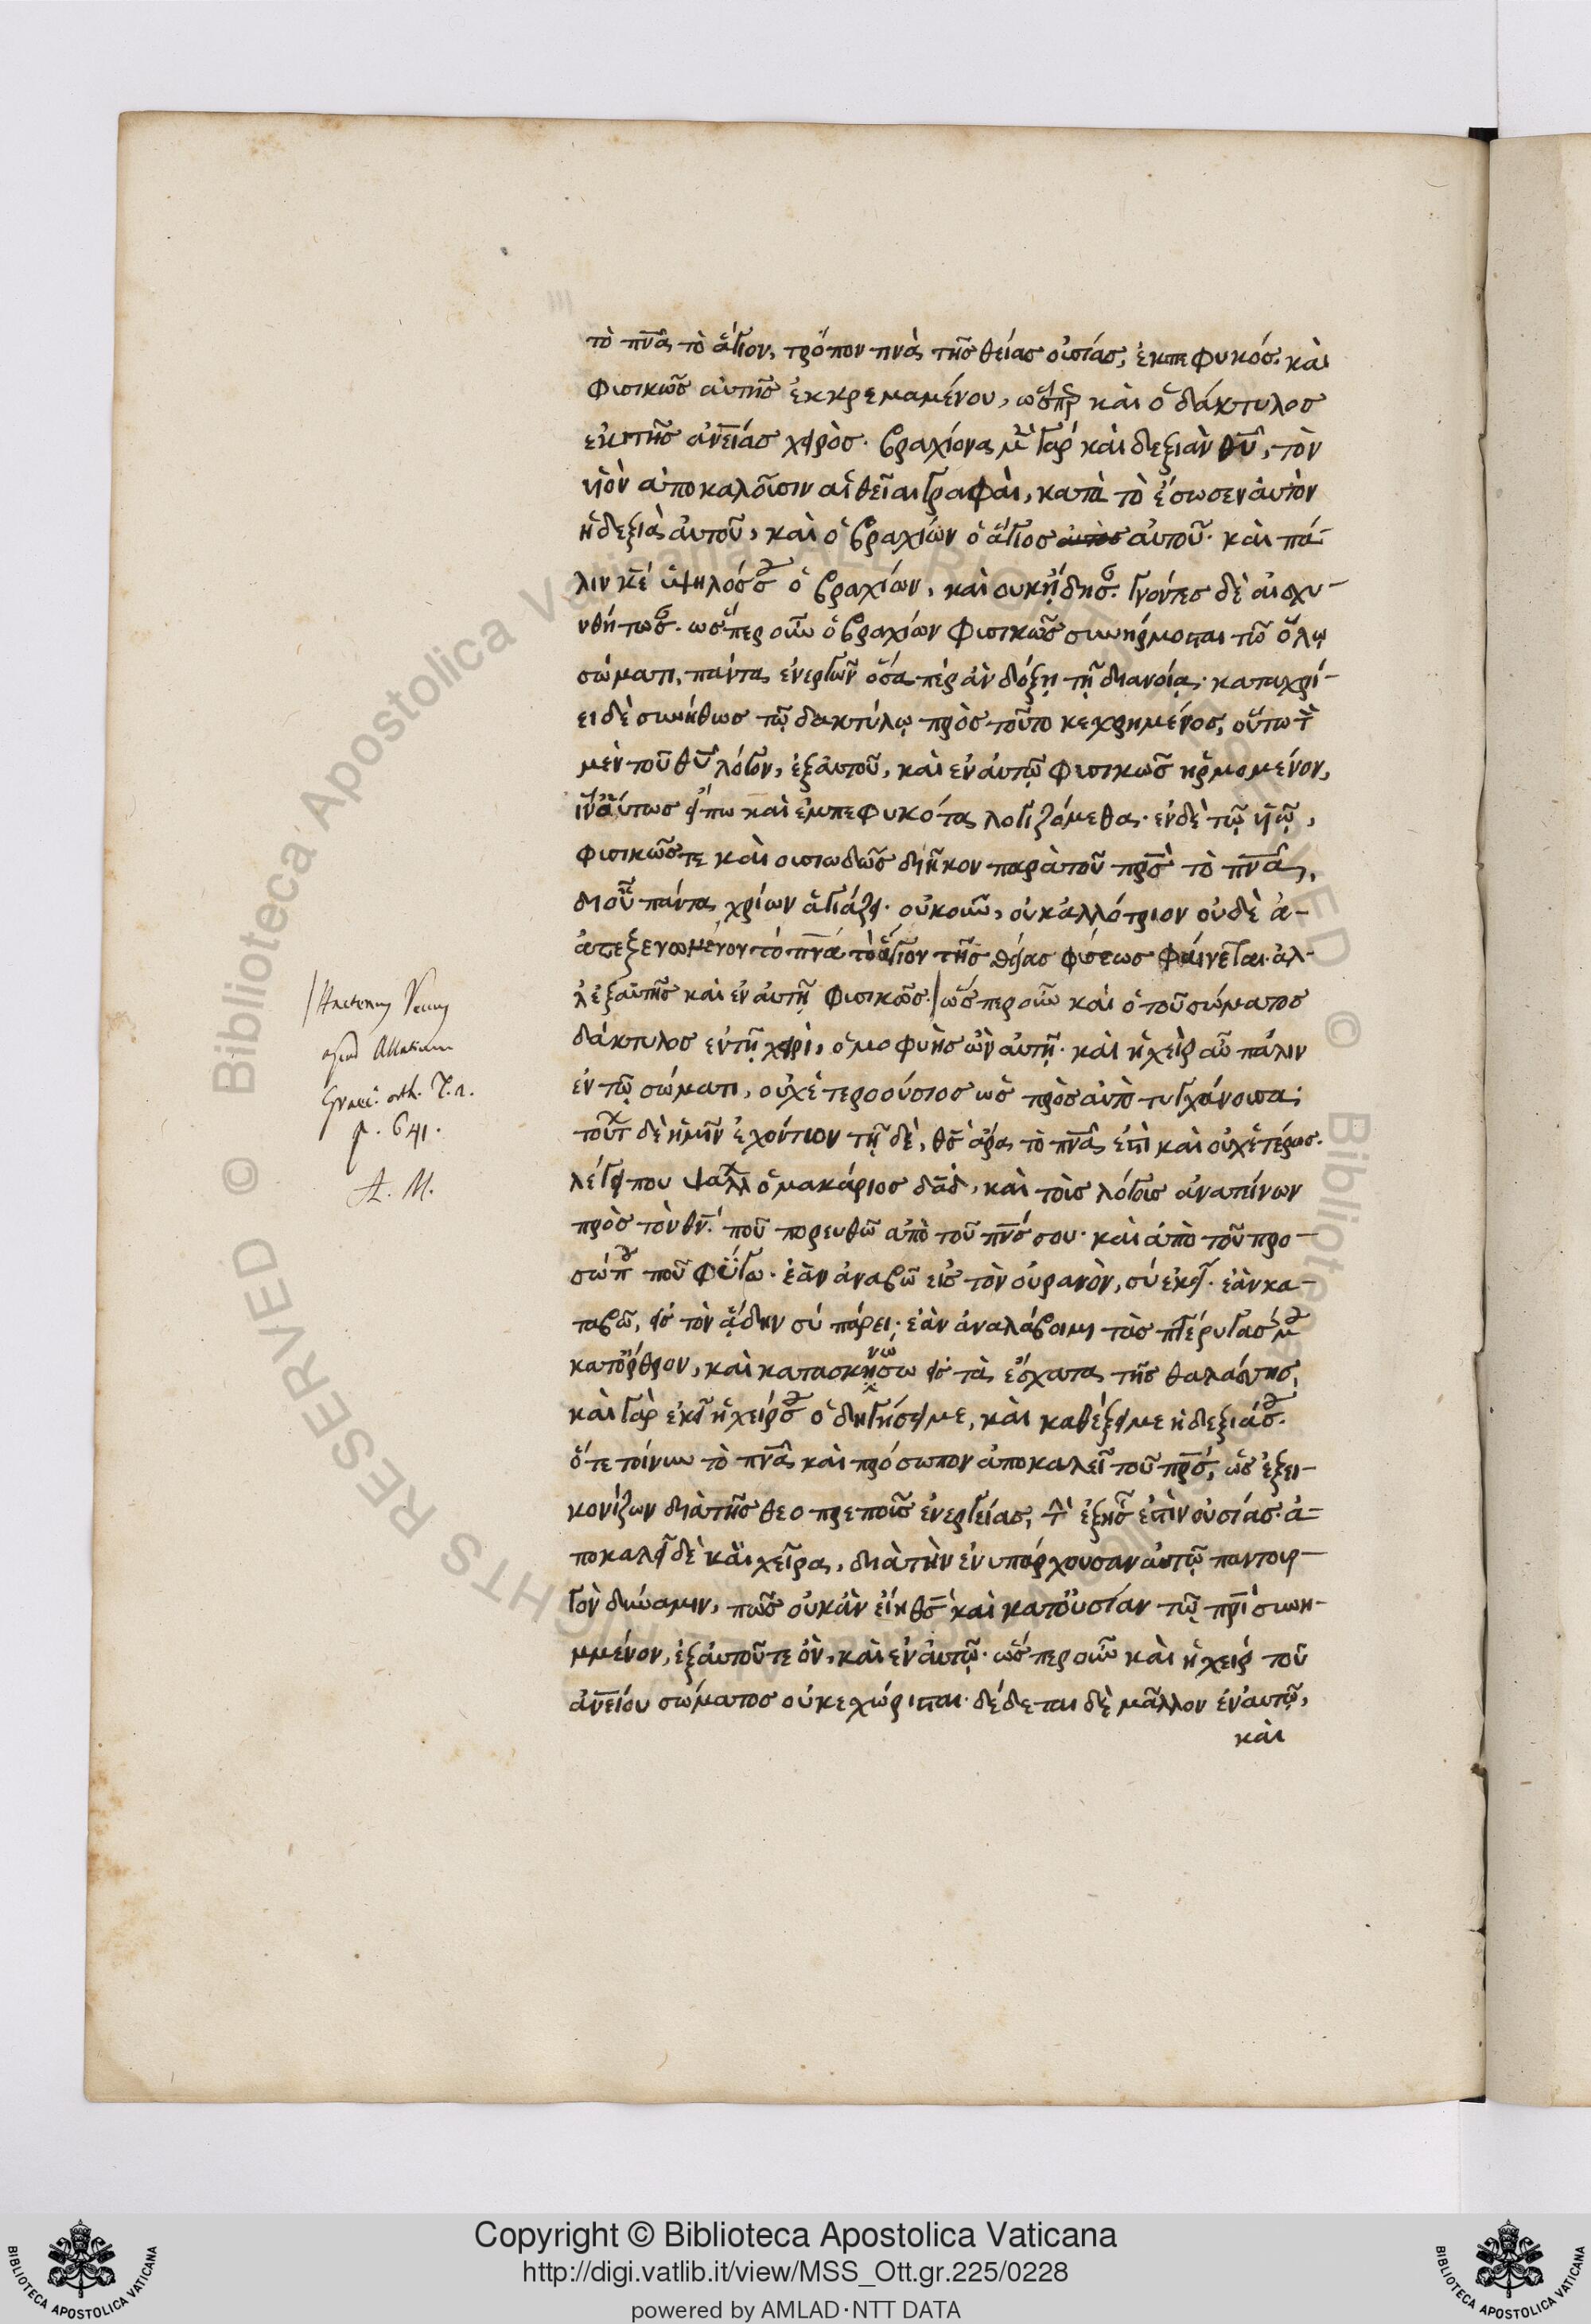 τὸ πν̅α̅ τὸ ἅγιον, τρόπον τινὰ τῆς θείας οὐσίας, ἐκπεφυκός. καὶ
φυσικῶς αὐτῆς ἐκκρεμαμένου, ὥσπερ καὶ ὁ δάκτυλος
ἐκ τῆς αν̅είας χειρὸς. βραχίονα μὲν γὰρ καὶ δεξιὰν θυ̅, τὸν
υἱὸν ἀποκαλοῦσιν αἱ θεῖαι γραφαὶ, κατὰ τὸ ἔσωσεν αὐτὸν
ἡ δεξιὰ αὐτοῦ, καὶ ὁ βραχίων ὁ ἅγιος αὐτοῦ. καὶ πά-
λιν κε̅ ὑψηλός σου ὁ βραχίων, καὶ οὐκ ᾔδησ. γνόντες δὲ αἰσχυ-
νθήτωσ. ὥσπερ οὖν ὁ βραχίων φυσικῶς συνήρμοσται τῷ ὅλῳ
σώματι, πάντα ἐνεργῶν ὅσα πὲρ ἂν δόξῃ τῇ διανοίᾳ. καταχρί-
ει δὲ συνήθως τῷ δακτύλῳ πρὸς τοῦτο κεχρημένος, οὕτω τὸν
μὲν τοῦ θυ̅ λόγον, ἐξ αὐτοῦ, καὶ ἐν αὐτῷ φυσικῶς ἡρμομένον,
ἵν' οὕτως εἴπω καὶ ἐμπεφυκότα λογιζόμεθα. ἐν δὲ τῷ υἱῷ,
φυσικῶς τε καὶ οὐσιωδῶς διῆκον παρὰ τοῦ πρ̅ς̅ τὸ πν̅α̅,
δι οὗ πάντα χρίων ἁγιάζει. οὐκοῦν, οὐκ ἀλλότριον οὐδὲ ἀ-
ἀπεξενωμένον τὸ πν̅α̅ τὸ ἅγιον τῆς θείας φύσεως φαίνεται. ἀλ-
λ' ἐξ αὐτῆς καὶ ἐν αὐτῇ φυσικῶς. / ὥσπερ οὖν καὶ ὁ τοῦ σώματος
δάκτυλος ἐν τῇ χειρὶ, ὁμοφυὴς ὢν αὐτῇ. καὶ ἡ χεὶρ αὖ πάλιν
ἐν τῷ σώματι, οὐχ ἑτεροούσιος ὡς πρὸς αὐτὸ τυγχάνουσα;
δὲ ἡμῖν ἐχόντων τῇ δὲ, θς̅ ἄρα τὸ πν̅α̅ ἐστὶ καὶ οὐχ ἑτέρως.
λέγει που ψάλλ ὁ μακάριος δα̅δ̅, καὶ τοῖς λόγοις ἀνατείνων
πρὸς τὸν θν̅. ποῦ πορευθῶ ἀπὸ τοῦ πν̅ς̅ σου. καὶ ἀπὸ τοῦ προ-
σώπου σου ποῦ φύγω. ἐὰν ἀναβῶ εἰς τὸν οὐρανὸν, σὺ ἐκεῖ. ἐὰν κα-
ταβῶ, εἰς τὸν ᾅδην σὺ πάρει. ἐὰν ἀναλάβοιμι τὰς πτέρυγάς μου
κατ' ὄρθρον, καὶ κατασκηνώσω εἰς τὰ ἔσχατα τῆς θαλάσσης,
καὶ γὰρ ἐκεῖ ἡ χείρ σου ὁδηγήσει με, καὶ καθέξει με ἡ δεξιά σου.
ὅτε τοίνυν τὸ πν̅α̅ καὶ πρόσωπον ἀποκαλεῖ τοῦ πρ̅ς̅, ὡς ἐξει-
κονίζων διὰ τῆς θεοπρεποῦς ἐνεργείας, τὴν ἐξ ἧς ἐστὶν οὐσίας. ἀ-
ποκαλεῖ δὲ καὶ χεῖρα, διὰ τὴν ἐνυπάρχουσαν αὐτῷ παντουρ-
γὸν δύναμιν, πῶς οὐκ ἂν εἴη θς̅ καὶ κατ' οὐσίαν τῷ πρ̅ὶ συνη-
μμένον, ἐξ αὐτοῦ τε ὂν, καὶ ἐν αὐτῷ. ὥσπερ οὖν καὶ ἡ χεὶρ τοῦ
αν̅είου σώματος οὐ κεχώρισται. δέδεται δὲ μᾶλλον ἐν αὐτῷ,
καὶ
/ Hactenus Veccus
apud Allatium
Graec. orth. T. 2.
p. 641.
A. M.
Copyright © Biblioteca Apostolica Vaticana
http://digi.vatlib.it/view/MSS_Ott.gr.225/0228
powered by AMLAD·NTT DATA